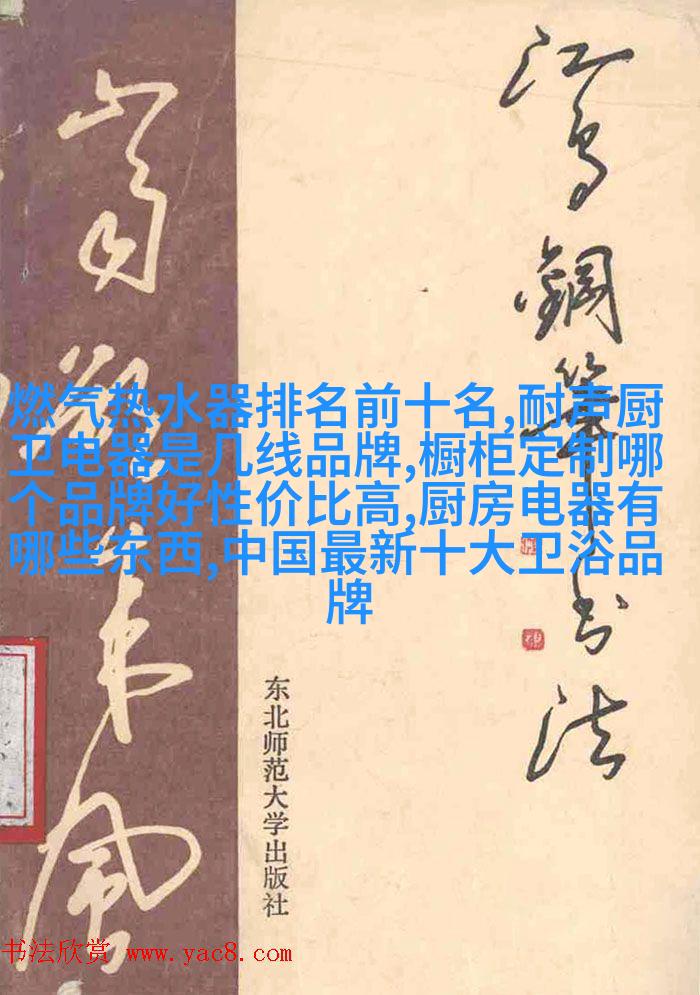 江鸟鋼筆书法
燃气热水器排名前十名,耐声厨
卫电器是几线品牌,橱柜定制哪
个品牌好性价比高,厨房电器有
哪些东西,中国最新十大卫浴品
牌
东北师范大学出版社
书法欣赏 www.yac8.com